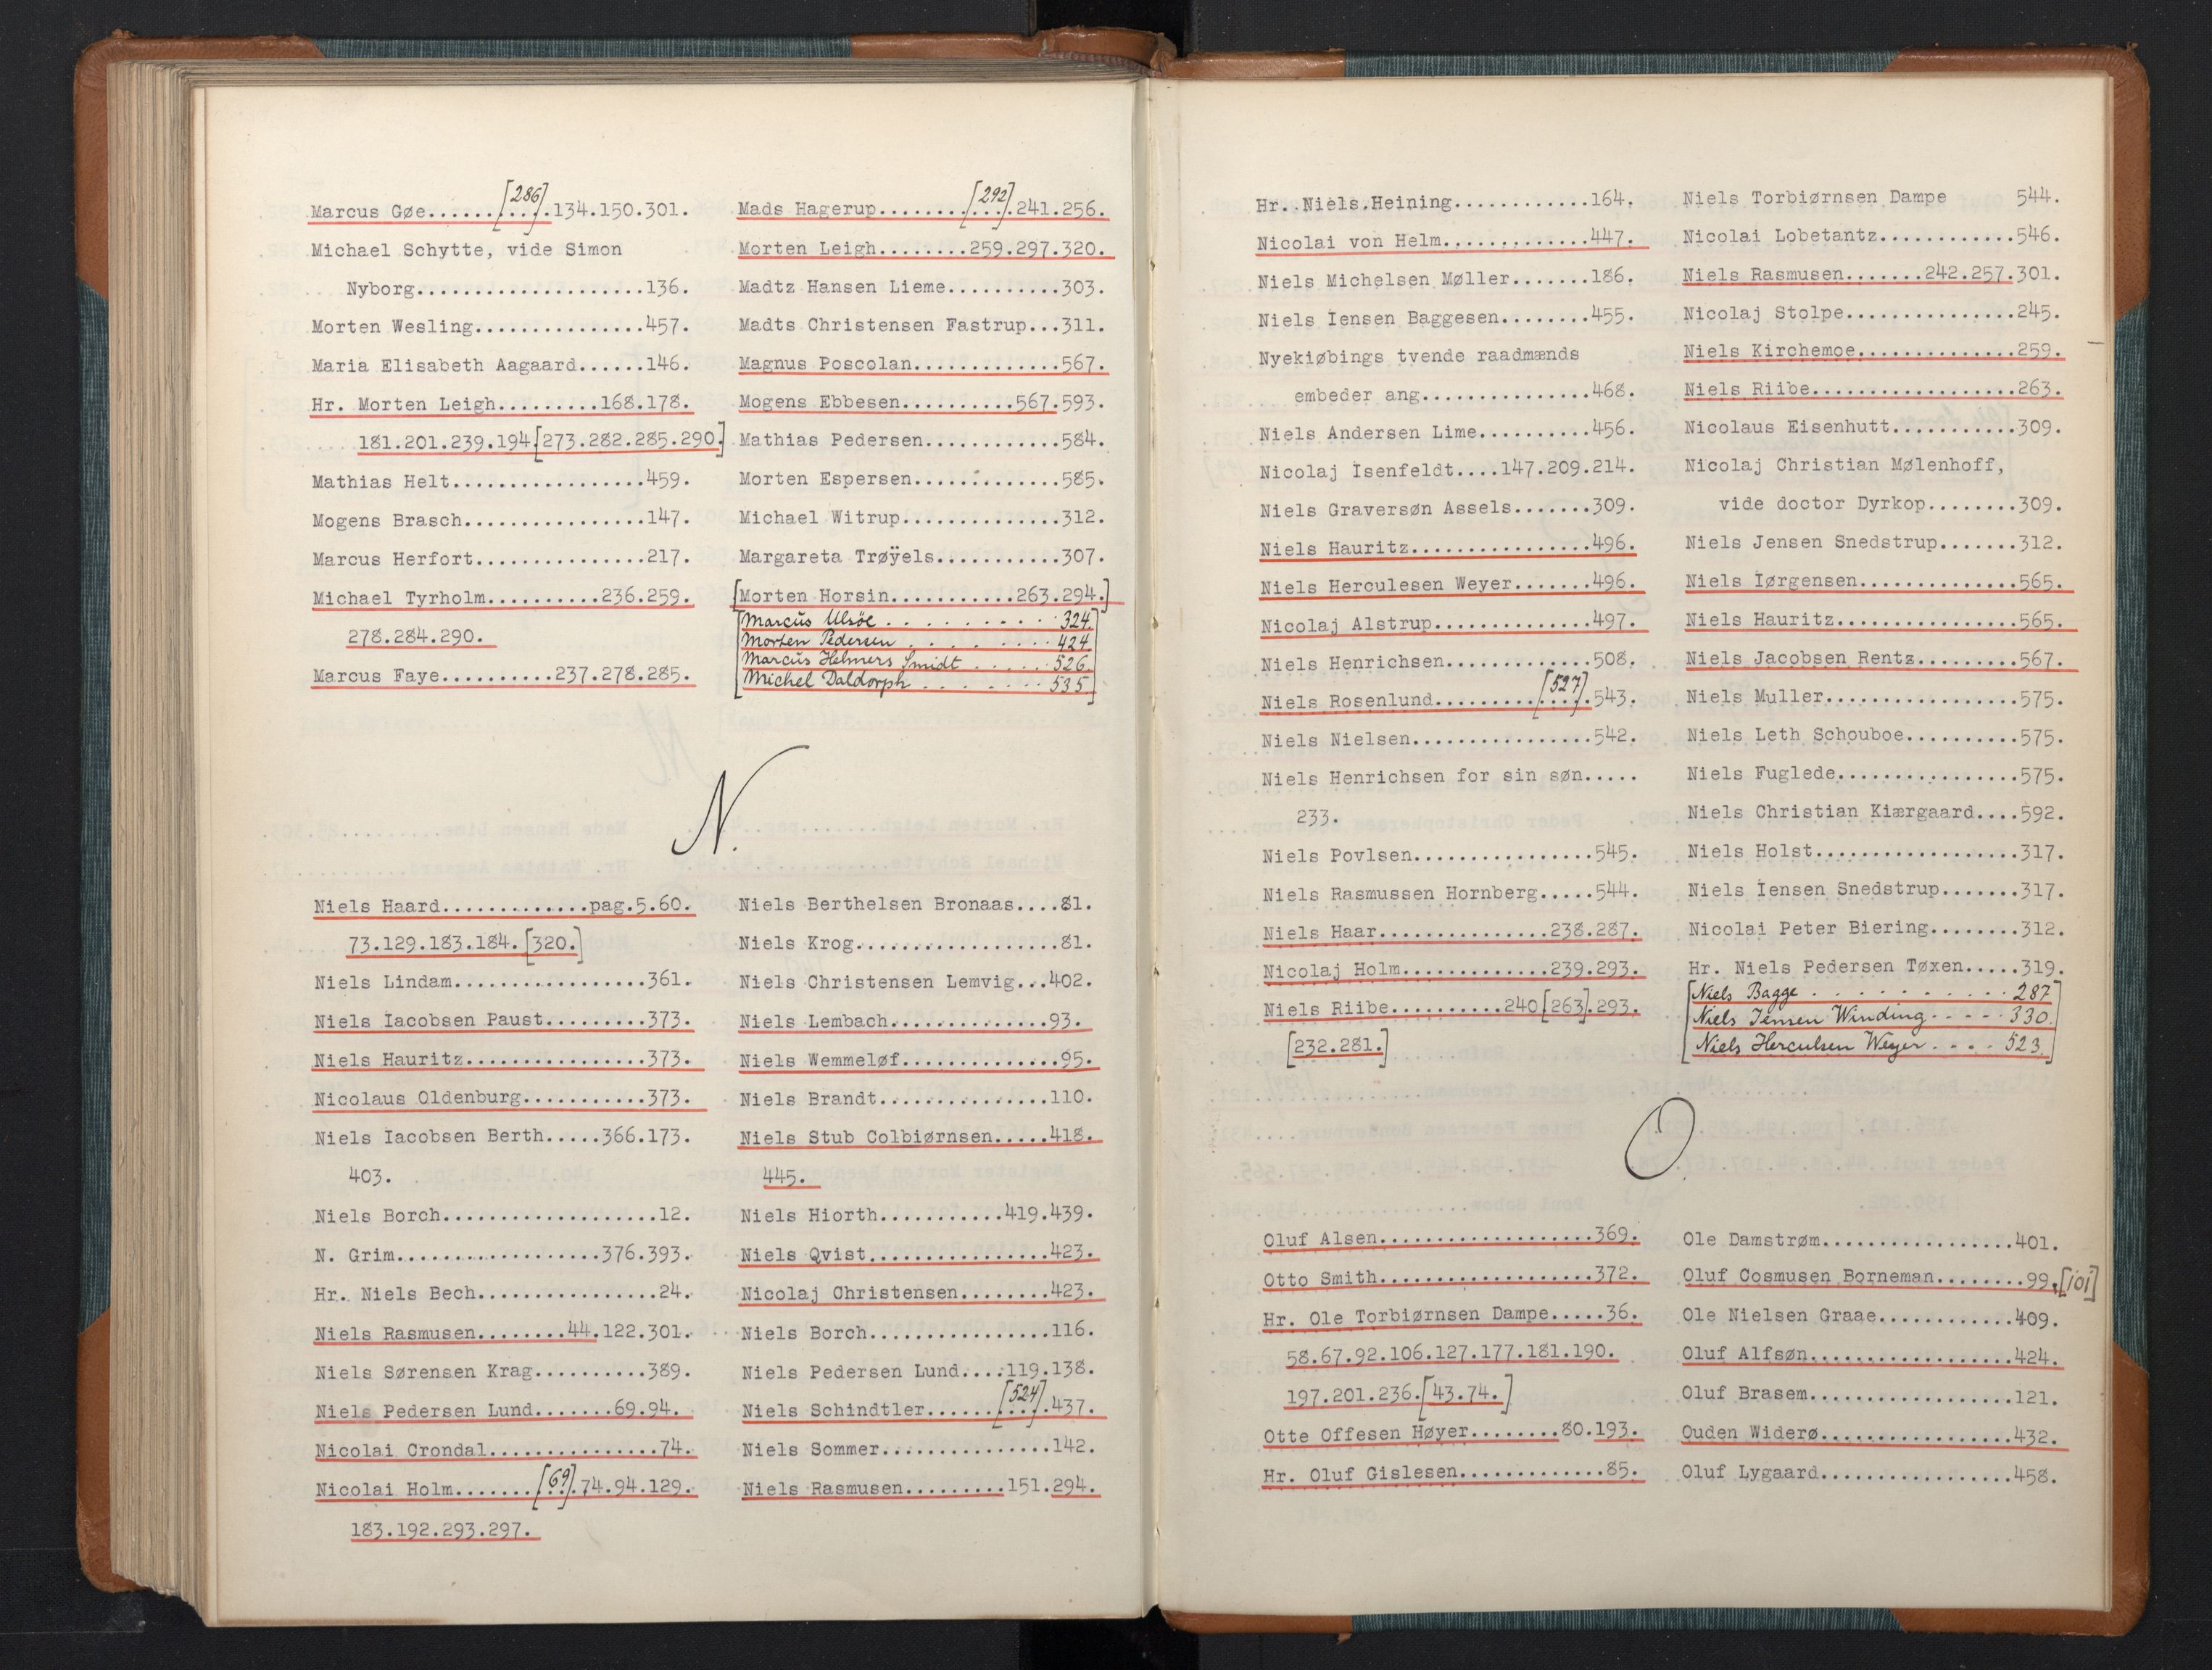 Marcus Gøe........[286].134.150.301.
Michael Schytte, vide Simon
Nyborg....................136.
Morten Wesling...............457.
Maria Elisabeth Aagaard......146.
Hr. Morten Leigh.........168.178.
181.201.239.194.[273.282.285.290.]
Mathias Helt.................459.
Mogens Brasch................147.
Marcus Herfort...............217.
Michael Tyrholm..........236.259.
278.284.290.
Marcus Faye..........237.278.285.
Mads Hagerup........[292].241.256.
Morten Leigh........259.297.320.
Madtz Hansen Lieme..........303.
Madts Christensen Fastrup...311.
Magnus Poscolan.............567.
Mogens Ebbesen..........567.593.
Mathias Pedersen............584.
Morten Espersen.............585.
Michael Witrup..............312.
Margareta Trøÿels...........307.
[Morten Horsin...........263.294.]
[Marcus Ulsöe . . . . . . . . . . 324.
Morten Pedersen . . . . . . . . 424.
Marcus Helmers Smidt . . . . . 526.
Michel Daldorph . . . . . . . 535]
N.
Niels Haard.............pag.5.60.
73.129.183.184.[320.]
Niels Lindam.................361.
Niels Iacobsen Paust.........373.
Niels Hauritz................373.
Nicolaus Oldenburg...........373.
Niels Iacobsen Berth.....366.173.
403.
Niels Borch...................12.
N. Grim..................376.393.
Hr. Niels Bech................24.
Niels Rasmusen........44.122.301.
Niels Sørensen Krag..........389.
Niels Pedersen Lund.......69.94.
Nicolai Crondal...............74.
Nicolai Holm.......[69].74.94.129.
183.192.293.297.
Niels Berthelsen Bronaas....81.
Niels Krog..................81.
Niels Christensen Lemvig...402.
Niels Lembach..............93.
Niels Wemmeløf..............95.
Niels Brandt...............110.
Niels Stub Colbiørnsen.....418.
445.
Niels Hiorth...........419.439.
Niels Qvist................423.
Nicolaj Christensen........423.
Niels Borch................116.
Niels Pedersen Lund....119.138.
Niels Schindtler......[524].437.
Niels Sommer...............142.
Niels Rasmusen.........151.294.
Hr. Niels Heining............164.
Nicolai von Helm.............447.
Niels Michelsen Møller.......186.
Niels Iensen Baggesen........455.
Nyekiøbings tvende raadmænds
embeder ang...............468.
Niels Andersen Lime..........456.
Nicolaj Isenfeldt....147.209.214.
Niels Graversøn Assels.......309.
Niels Hauritz................496.
Niels Herculesen Weyer.......496.
Nicolaj Alstrup..............497.
Niels Henrichsen.............508.
Niels Rosenlund.........[527].543.
Niels Nielsen................542.
Niels Henrichsen for sin søn.....
233.
Niels Povlsen................545.
Niels Rasmussen Hornberg.....544.
Niels Haar...............238.287.
Nicolaj Holm.............239.293.
Niels Riibe..........240[263].293.
[232.281.]
Niels Torbiørnsen Dampe 544.
Nicolai Lobetantz............546.
Niels Rasmusen.......242.257.301.
Nicolaj Stolpe...............245.
Niels Kirchemoe..............259.
Niels Riibe..................263.
Nicolaus Eisenhutt...........309.
Nicolaj Christian Mølenhoff,
vide doctor Dyrkop........309.
Niels Jensen Snedstrup.......312.
Niels Iørgensen..............565.
Niels Hauritz................565.
Niels Jacobsen Rentz.........567.
Niels Muller.................575.
Niels Leth Schouboe..........575.
Niels Fuglede................575.
Niels Christian Kiærgaard....592.
Niels Holst..................317.
Niels Iensen Snedstrup.......317.
Nicolai Peter Biering........312.
Hr. Niels Pedersen Tøxen.....319.
[Niels Bagge . . . . . . . . . . 287
Niels Jensen Winding . . . . . 330.
Niels Herculsen Weyer . . . . 523.]
O.
Oluf Alsen...................369.
Otto Smith...................372.
Hr. Ole Torbiørnsen Dampe.....36.
58.67.92.106.127.177.181.190.
197.201.236.[43.74.]
Otte Offesen Høyer........80.193.
Hr. Oluf Gislesen.............85.
Ole Damstrøm.................401.
Oluf Cosmusen Borneman........99.[101]
Ole Nielsen Graae............409.
Oluf Alfsøn..................424.
Oluf Brasem..................121.
Ouden Widerø.................432.
Oluf Lygaard.................458.